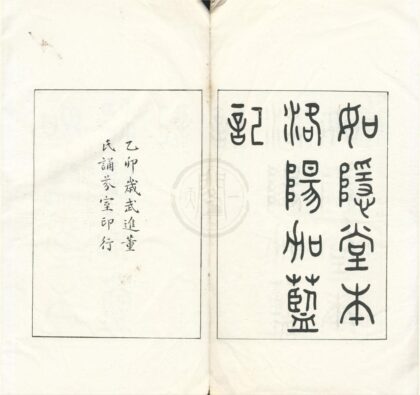 如隱堂本
洛陽伽藍
記
乙卯歲武進董
氏誦芬室印行